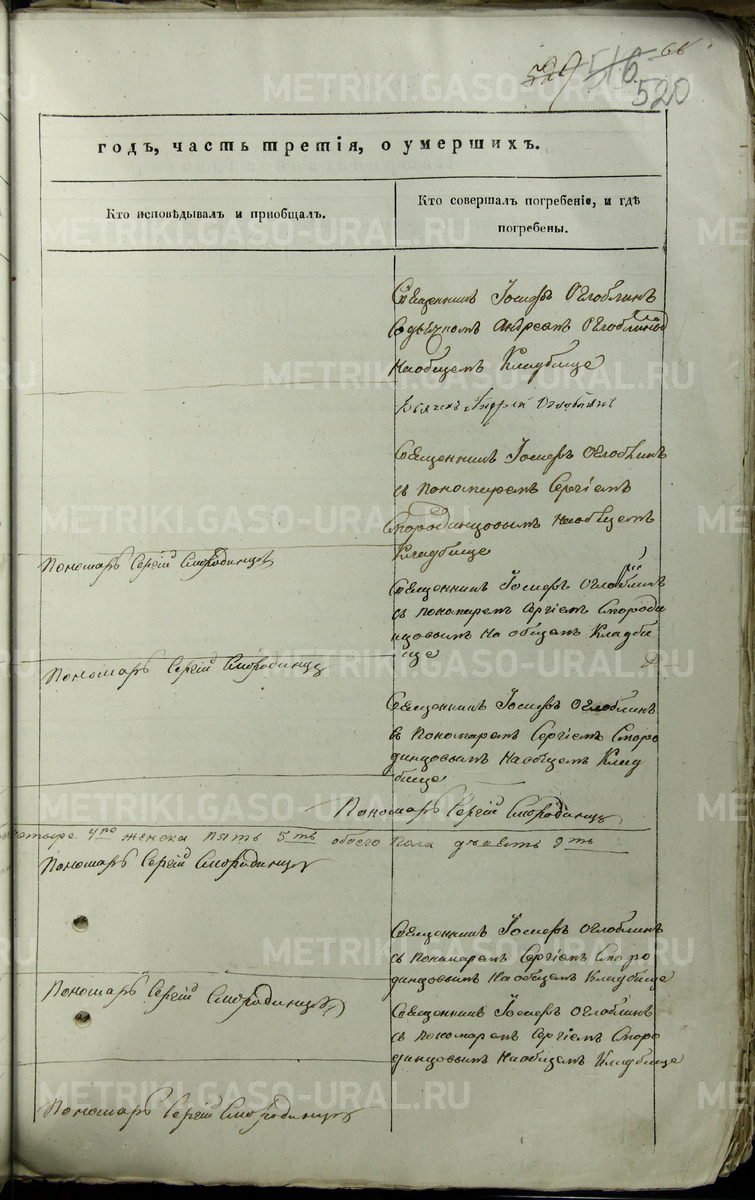 529 516 66
520
годъ, часть третія, о умершихъ.
Кто исповѣдывалъ и пріобщалъ.
Кто совершалъ погребеніе, и гдѣ
погребены.
Священникъ Іосифъ Оглоблинъ
Содьячкомъ Андреемъ Оглоблинымъ
Наобщемъ Кладбище
Дьячекъ Андрей Оглоблинъ
Священникъ Іосифъ Оглоблинъ
съ Пономаремъ Сергіемъ
Смородинцовымъ Наобщемъ
Кладбище
Пономарь Сергій Смородинцовъ
Священникъ Іосифъ Оглоблинъ
съ пономаремъ Сергіемъ Смороди
нцовымъ На общемъ Кладби
ще
Пономарь Сергій Смородинцов
Священникъ Іосифъ Оглоблинъ
съ Пономаремъ Сергіемъ Сморо
динцовымъ Наобщемъ Клад
бище
Пономарь Сергій Смородинцов
четыре 4ре женска пять 5ть обоего пола девять 9ть
Пономарь Сергій Смородинцов
Священникъ Іосифъ Оглоблинъ
съ Пономаремъ Сергіемъ Сморо
динцовымъ Наобщемъ Кладбище
Пономарь Сергій Смородинцов
Священникъ Іосифъ Оглоблинъ
съ пономаремъ Сергіемъ Сморо
динцовымъ Наобщемъ Кладбище
Пономарь Сергій Смородинцов
METRIKI.GASO-URAL.RU